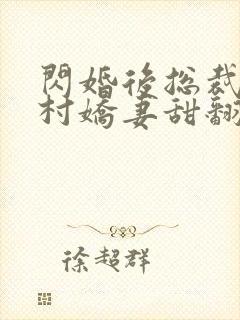 閃婚後總裁
村嬌妻甜翻
徐超群